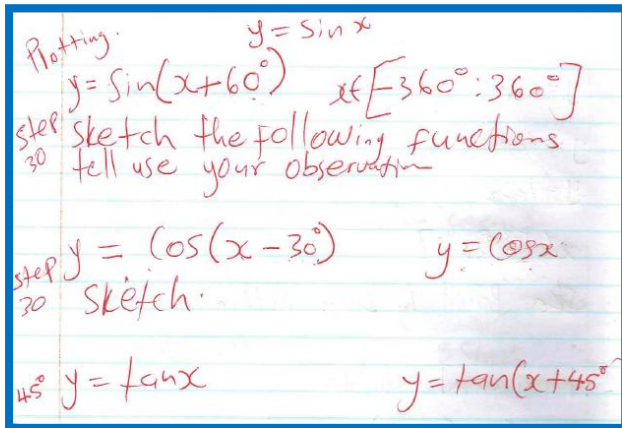 Plotting. y = sin x
y = sin(x+60°) x∈[-360°:360°]
step 30 sketch the following functions
tell use your observation
step 30 y = Cos(x-30°) y = Cosx
sketch.
45° y = tanx y = tan(x+45°